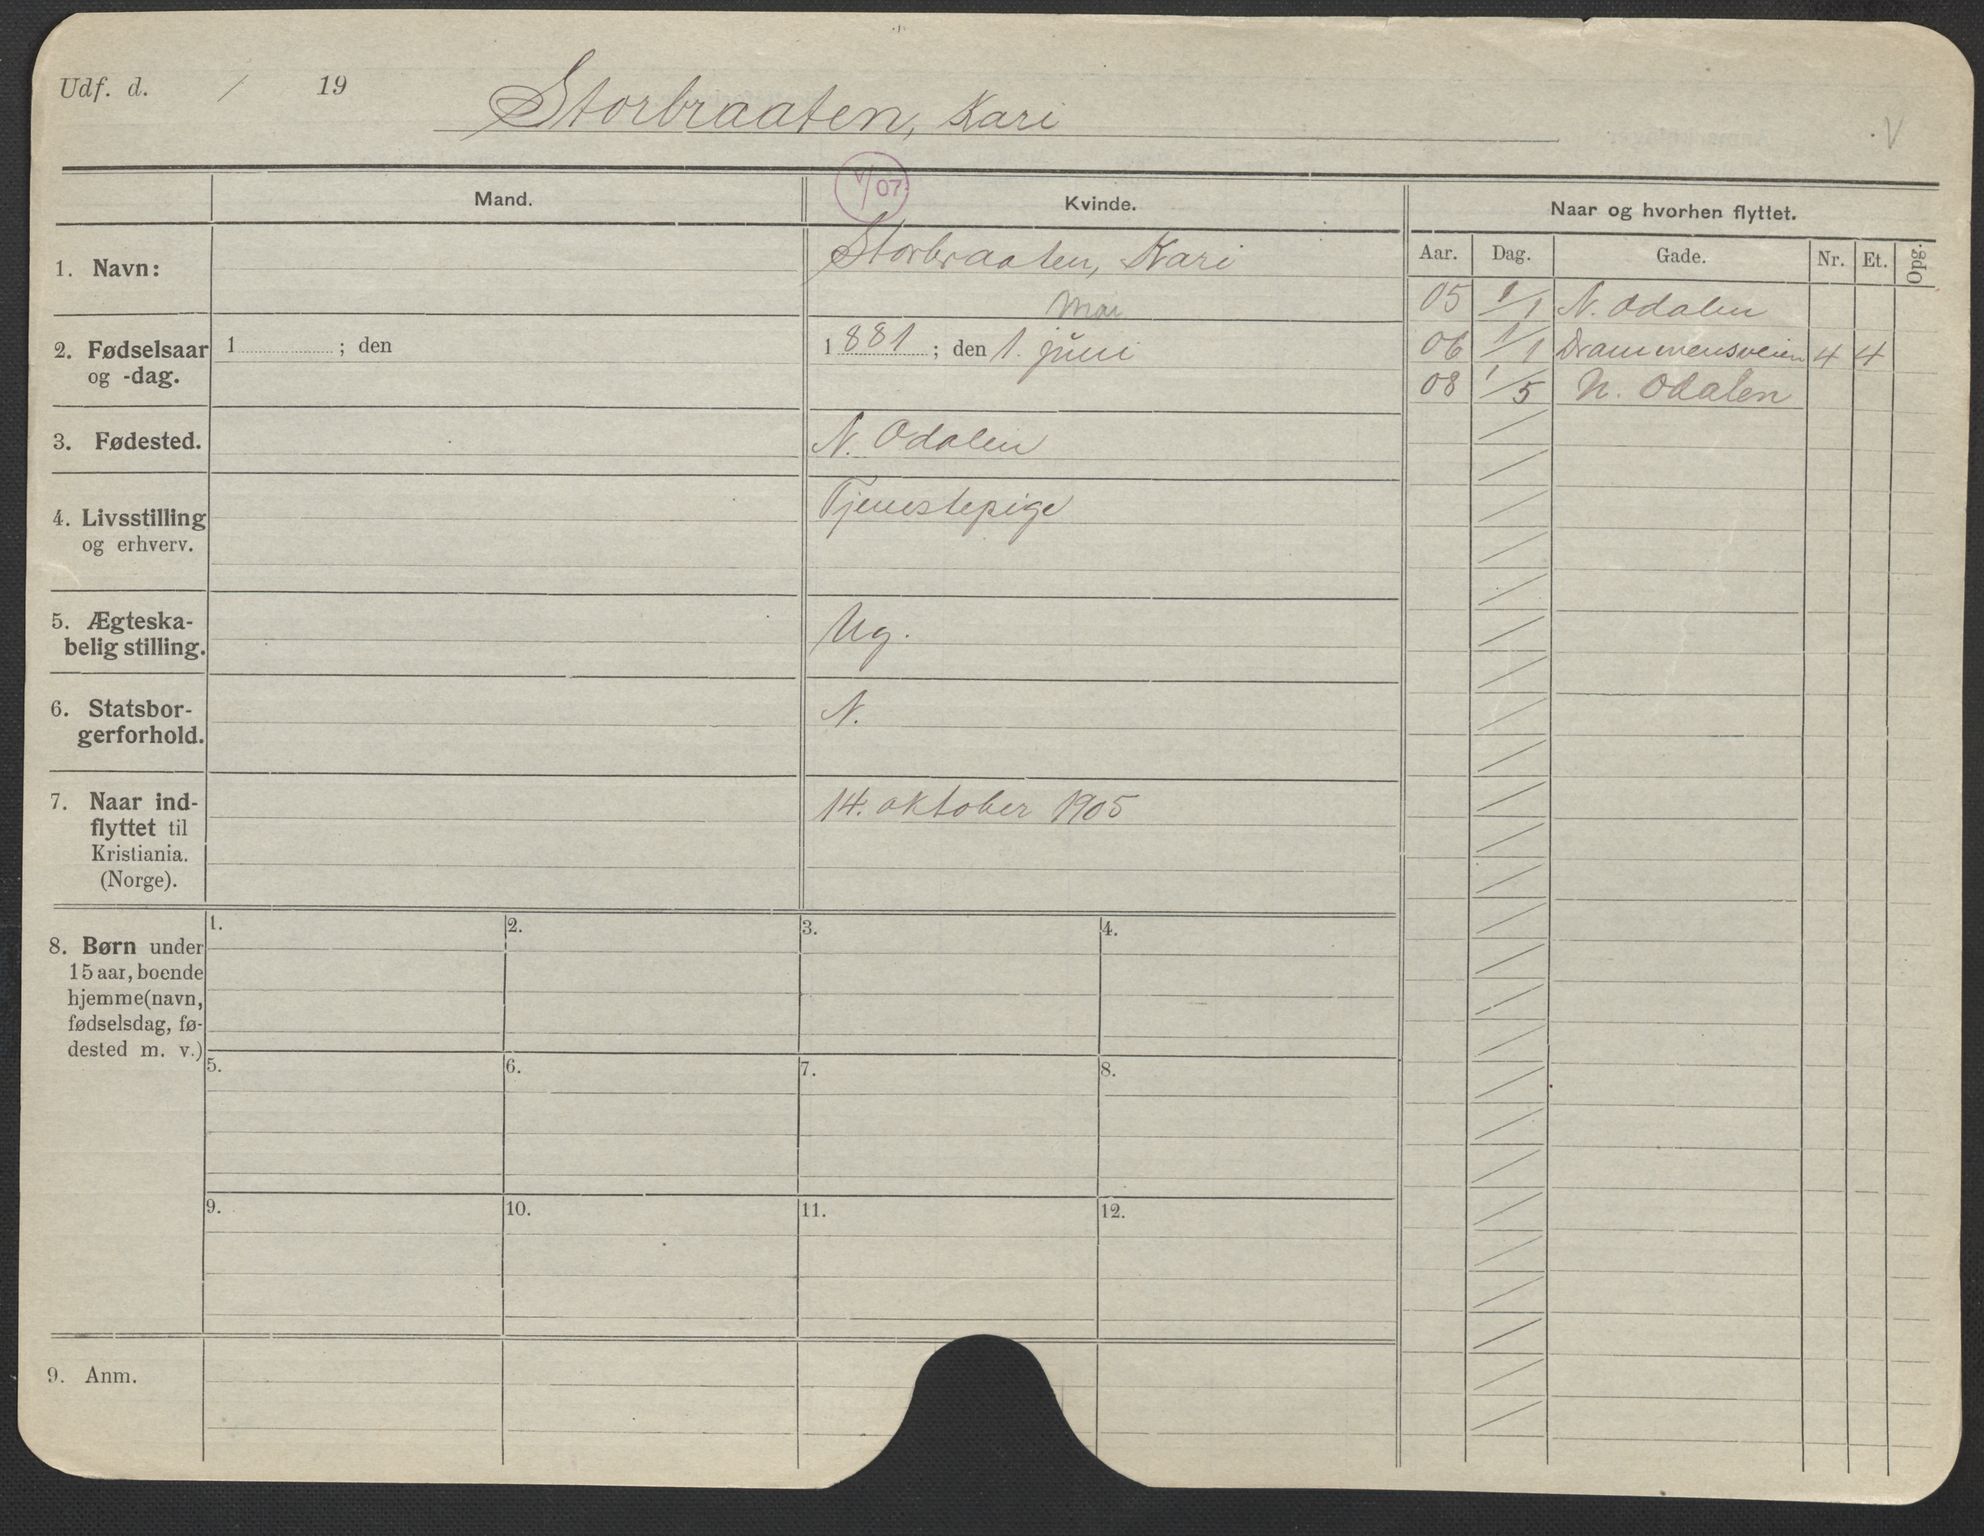 Udf. d. / 19
Storbraaten, Kari
V
V/07.
Mand.
Kvinde.
Naar og hvorhen flyttet.
Aar. Dag. Gade. Nr. Et. Opg.
1. Navn:
Storbraaten, Kari
Mai
2. Fødselsaar
og -dag.
1 ; den
1881 ; den 1. juni
3. Fødested.
N. Odalen
4. Livsstilling
og erhverv.
Tjenestepige
5. Ægteska-
belig stilling.
Ug.
6. Statsbor-
gerforhold.
N.
7. Naar ind-
flyttet til
Kristiania.
(Norge).
14. oktober 1905
8. Børn under
15 aar, boende
hjemme (navn,
fødselsdag, fø-
dested m. v.)
1. 2. 3. 4.
5. 6. 7. 8.
9. 10. 11. 12.
9. Anm.
05 1/1 N. Odalen
06 1/1 Drammensveien 4 4
08 1/5 N. Odalen